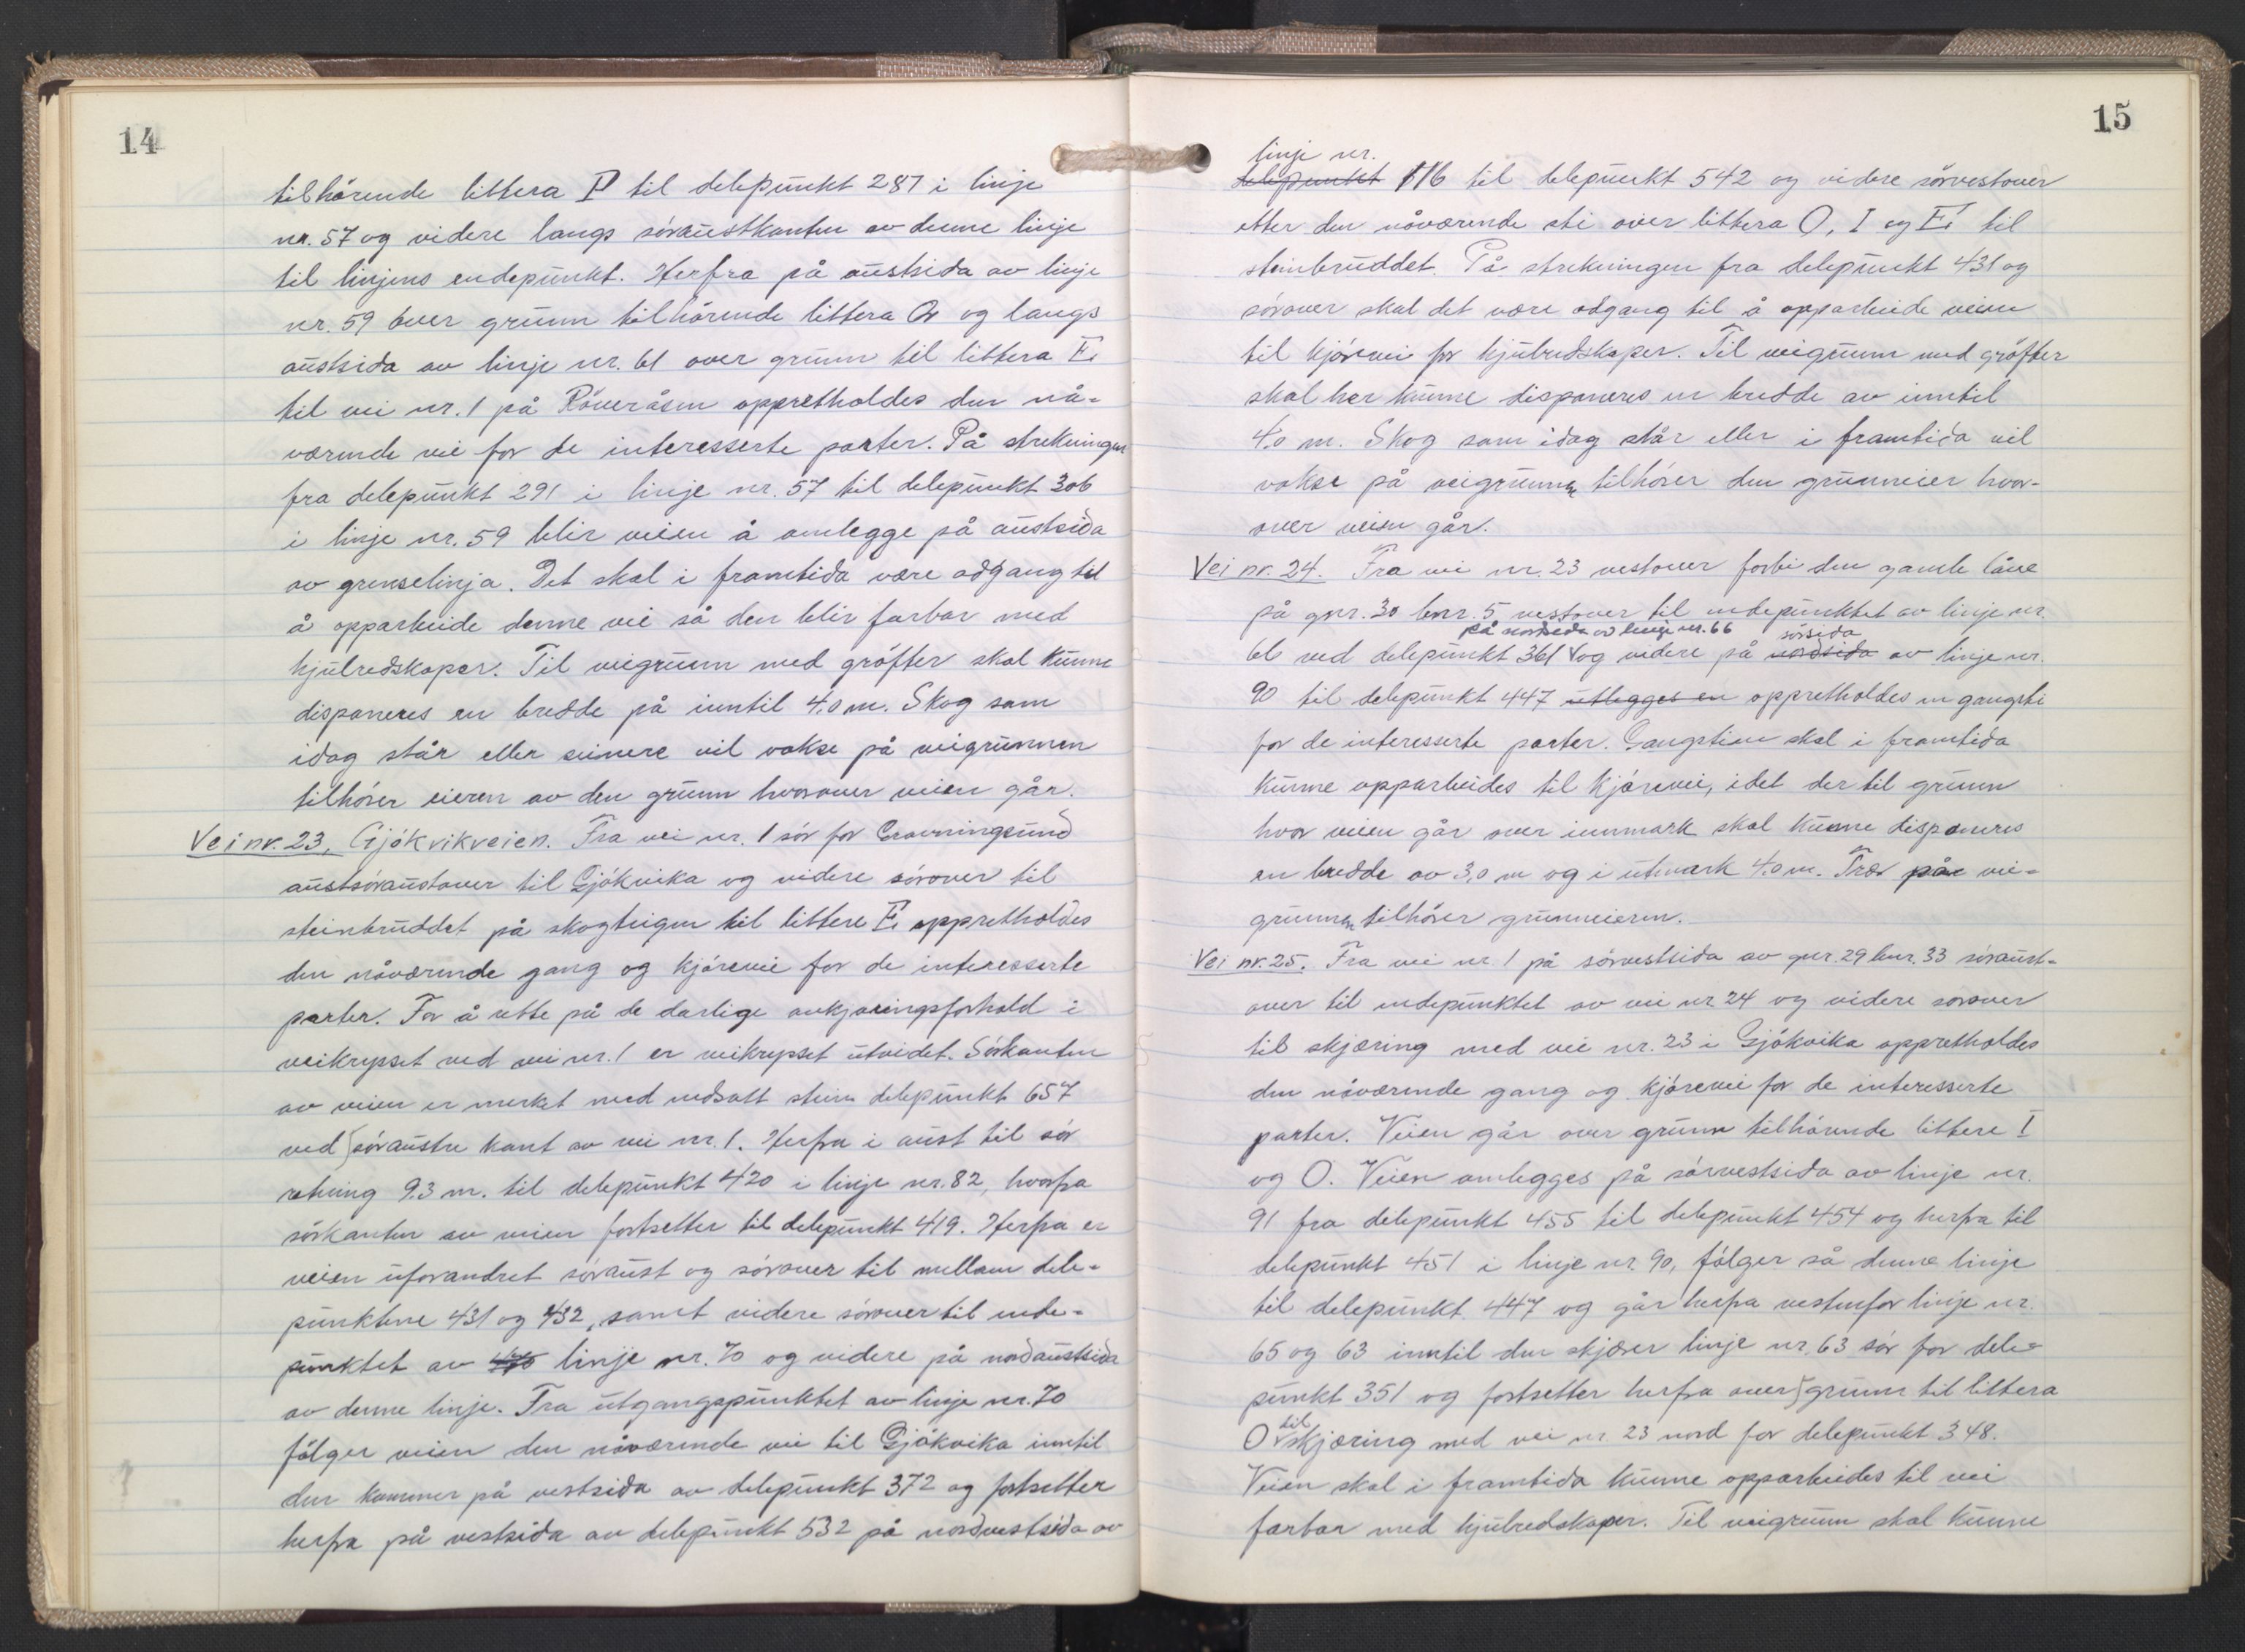 14
tilhörende littera P til delepunkt 287 i linje
nr. 57 og videre langs söraustkanten av denne linje
til linjens endepunkt. Herfra på austsida av linje
nr. 59 över grunn tilhörende littera Q og langs
austsida av linje nr. 61 over grunn til littera E1
til vei nr. 1 på Röveråsen oppretholdes den nå-
værende vei for de interesserte parter. På strekningen
fra delepunkt 291 i linje nr. 57 til delepunkt 306
i linje nr. 59 blir veien å omlegge på austsida
av grenselinja. Det skal i framtida være adgang til
å opparbeide denne vei så den blir farbar med
hjulredskaper. Til veigrunn med gröfter skal kunne
disponeres en bredde på inntil 4,0 m. Skog som
idag står eller seinere vil vokse på veigrunnen
tilhörer eieren av den grunn hvorover veien går.
Vei nr. 23. Gjökvikveien. Fra vei nr. 1 sör for Gravningsund
austsöraustover til Gjökvika og videre sörover til
steinbruddet på skogteigen til littere E1 oppretholdes
den nåværende gang og kjörevei for de interesserte
parter. For å rette på de darlige avkjöringsforhold i
veikrysset ved vei nr. 1 er veikrysset utvidet. Sörkanten
av veien er merket med nedsatt stein delepunkt 657
ved söraustre kant av vei nr. 1. Herfra i aust til sör
retning 9.3 m. til delepunkt 420 i linje nr. 82, hvorfra
sörkanten av veien fortsetter til delepunkt 419. Herfra er
veien uforandret söraust og sörover til mellom dele-
punktene 431 og 432, samt videre sörover til ende-
punktet av linje nr. 70 og videre på nordaustsida
av denne linje. Fra utgangspunktet av linje nr. 70
fölger veien den nåværende vei til Gjökvika inntil
den kommer på vestsida av delepunkt 372 og fortsetter
herfra på vestsida av delepunkt 532 på nordvestsida av
15
linje nr.
delepunktet 116 til delepunkt 542 og videre sörvestover
etter den nåværende sti over littera O, I og E1 til
steinbruddet. På strekningen fra delepunkt 431 og
sörover skal det være adgang til å opparbeide veien
til kjörevei for hjulredskaper. Til veigrunn med gröfter
skal her kunne disponeres en bredde av inntil
4.0 m. Skog som idag står eller i framtida vil
vokse på veigrunnen tilhörer den grunneier hvor-
over veien går.
Vei nr. 24. Fra vei nr. 23 vestover forbi den gamle låve
på gnr. 30 bnr. 5 vestover til endepunktet av linje nr.
på nordsida av linje nr. 66 sörsida
66 ved delepunkt 361 og videre på nordsida av linje nr.
90 til delepunkt 447 utlegges en oppretholdes en gangsti
for de interesserte parter. Gangstien skal i framtida
kunne opparbeides til kjörevei, idet der til grunn
hvor veien går over innmark skal kunne disponeres
en bredde av 3,0 m og i utmark 4.0 m. Trær på vei-
grunnen tilhörer grunneieren.
Vei nr. 25. Fra vei nr. 1 på sörvestsida av gnr. 29 bnr. 33 söraust-
over til endepunktet av vei nr 24 og videre sörover
til skjæring med vei nr. 23 i Gjökvika oppretholdes
den nåværende gang og kjörevei for de interesserte
parter. Veien går over grunn tilhörende littere I
og O. Veien omlegges på sörvestsida av linje nr.
91 fra delepunkt 455 til delepunkt 454 og herfra til
delepunkt 451 i linje nr. 90, fölger så denne linje
til delepunkt 447 og går herfra vestenfor linje nr.
65 og 63 inntil den skjærer linje nr. 63 sör for dele-
punkt 351 og fortsetter herfra over grunn til littera
til
O skjæring med vei nr 23 nord for delepunkt 348.
Veien skal i framtida kunne opparbeides til vei
farbar med hjulredskaper. Til veigrunn skal kunne